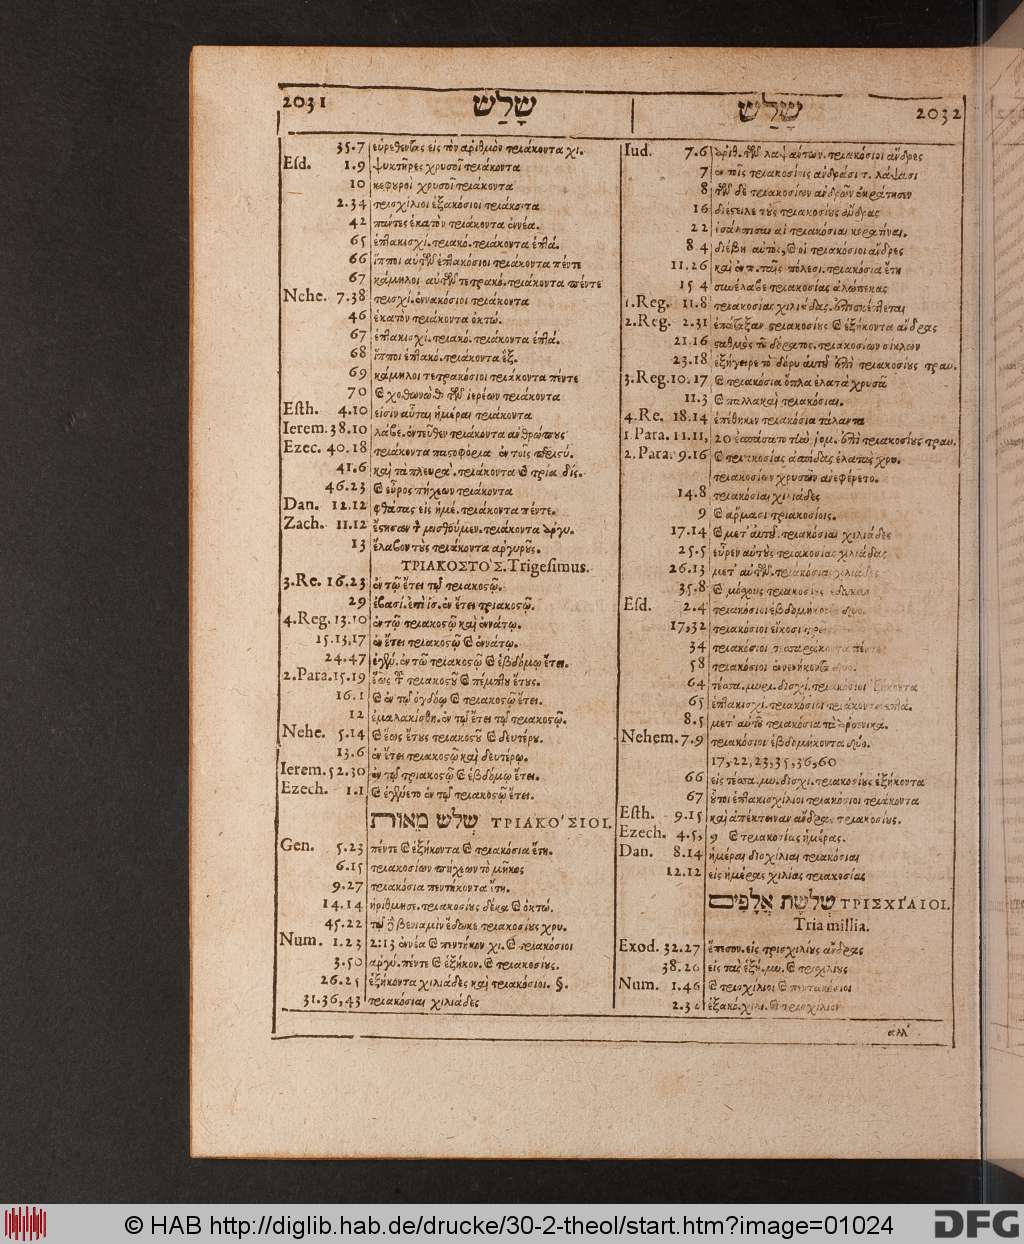 2031 שָׁלַשׁ
35.7 εὑρεθέντας εἰς τὸν ἀριθμὸν τριάκοντα χι.
Esd. 1.9 ψυκτῆρες χρυσοῖ τριάκοντα
10 κεφυροὶ χρυσοῖ τριάκοντα
2.34 τρισχίλιοι ἑξακόσιοι τριάκοντα
42 πάντες ἑκατὸν τριάκοντα ἐννέα.
65 ἑπτακισχί. τριακό. τριάκοντα ἑπτά.
66 ἵπποι αὐτῶν ἑπτακόσιοι τριάκοντα πέντε
67 κάμηλοι αὐτῶν τετρακό. τριάκοντα πέντε
Nehe. 7.38 τρισχί. ἐννακόσιοι τριάκοντα
46 ἑκατὸν τριάκοντα ὀκτώ.
67 ἑπτακισχι. τριακό. τριάκοντα ἑπτά.
68 ἵπποι ἑπτακό. τριάκοντα ἕξ.
69 κάμηλοι τετρακόσιοι τριάκοντα πέντε
70 καὶ χοθωνὼθ τῶν ἱερέων τριάκοντα
Esth. 4.10 εἰσὶν αὗται ἡμέραι τριάκοντα
Ierem. 38.10 λάβε. ἐντεῦθεν τριάκοντα ἀνθρώπους
Ezec. 40.18 τριάκοντα παστοφόρια ἐν τοῖς
41.6 καὶ τὰ πλευρὰ. τριάκοντα καὶ τρία δίς.
46.23 καὶ εὖρος πήχεων τριάκοντα
Dan. 12.12 φθάσας εἰς ἡμέ. τριάκοντα πέντε.
Zach. 11.12 ἔστησαν τὸν μισθόν μου. τριάκοντα ἀργυ.
13 ἔλαβον τοὺς τριάκοντα ἀργυροῦς.
ΤΡΙΑΚΟΣΤΟ'Σ. Trigesimus.
3.Re. 16.23 ἐν τῷ ἔτει τῷ τριακοστῷ.
29 ἐβασί. ἐπὶ ἰσ. ἐν ἔτει τριακοστῷ.
4.Reg. 13.10 ἐν τῷ τριακοστῷ καὶ ἐννάτῳ.
15.13,17 ἐν ἔτει τριακοστῷ καὶ ἐννάτῳ.
24.47 ἐγένε. ἐν τῷ τριακοστῷ καὶ ἑβδόμῳ ἔτει.
2.Para. 15.19 ἕως τοῦ τριακοστοῦ καὶ πέμπτου ἔτους.
16.1 καὶ ἐν τῷ ὀγδόῳ καὶ τριακοστῷ ἔτει.
12 ἐμαλακίσθη. ἐν τῷ ἔτει τῷ τριακοστῷ.
Nehe. 5.14 καὶ ἕως ἔτους τριακοστοῦ καὶ δευτέρου.
13.6 ἐν ἔτει τριακοστῷ καὶ δευτέρῳ.
Ierem. 52.30 ἐν τῷ τριακοστῷ καὶ ἑβδόμῳ ἔτει.
Ezech. 1.1 καὶ ἐγένετο ἐν τῷ τριακοστῷ ἔτει.
שְׁלֹשׁ מֵאוֹת ΤΡΙΑΚΟ'ΣΙΟΙ.
Gen. 5.23 πέντε καὶ ἑξήκοντα καὶ τριακόσια ἔτη.
6.15 τριακοσίων πήχεων τὸ μῆκος
9.27 τριακόσια πεντήκοντα ἔτη.
14.14 ἠρίθμησε. τριακοσίους δέκα καὶ ὀκτώ.
45.22 τῷ δὲ βενιαμὶν ἔδωκε τριακοσίους χρυ.
Num. 1.23 2.13 ἐννέα καὶ πεντήκον. χι. καὶ τριακόσιοι
3.50 ἀργύ. πέντε καὶ ἑξήκον. καὶ τριακοσίους.
26.25 ἑξήκοντα χιλιάδες καὶ τριακόσιοι. §.
31.36,43 τριακόσιαι χιλιάδες
שָׁלַשׁ 2032
Iud. 7.6 ἀριθ. τῶν λαψάντων. τριακόσιοι ἄνδρες
7 ἐν τοῖς τριακοσίοις ἀνδράσι τ. λάψασι
8 τῶν δὲ τριακοσίων ἀνδρῶν ἐκράτησεν
16 διέστειλε τοὺς τριακοσίους ἄνδρας
22 ἐσάλπισαν αἱ τριακόσιαι κερατίναι.
8 4 διέβη αὐτὸς, καὶ οἱ τριακόσιοι ἄνδρες
11.26 καὶ ἐν π. ταῖς πόλεσι. τριακόσια ἔτη
15 4 συνέλαβε τριακοσίας ἀλώπεκας
1.Reg. 11.8 τριακοσίας χιλιάδας.
2.Reg. 2.31 ἐπάταξαν τριακοσίους καὶ ἑξήκοντα ἄνδρας
21.16 σταθμὸς τοῦ δόρατος. τριακοσίων σίκλων
23.18 ἐξήγειρε τὸ δόρυ αὐτοῦ ἐπὶ τριακοσίους τραυ.
3.Reg. 10.17 καὶ τριακόσια ὅπλα ἐλατὰ χρυσᾶ
11.3 καὶ παλλακαὶ τριακόσιαι.
4.Re. 18.14 ἐπέθηκεν τριακόσια τάλαντα
1.Para. 11.11, 20 ἐσπάσατο τὴν ῥομ. ἐπὶ τριακοσίους τραυ.
2.Para. 9.16 καὶ τριακοσίας ἀσπίδας ἐλατὰς χρυ.
τριακοσίων χρυσῶν ἀνεφέρετο.
14.8 τριακόσιαι χιλιάδες
9 καὶ ἅρμασι τριακοσίοις.
17.14 καὶ μετ' αὐτοῦ. τριακόσιαι χιλιάδες
25.5 εὗρεν αὐτοὺς τριακοσίας χιλιάδας
26.13 μετ' αὐτῶν. τριακόσιαι χιλιάδες
35.8 καὶ μόσχους τριακοσίους ἔδωκαν
Esd. 2.4 τριακόσιοι ἑβδομήκοντα δύο.
17,32 τριακόσιοι εἴκοσι
34 τριακόσιοι τεσσαράκοντα πέντε
58 τριακόσιοι ἐννενήκοντα δύο.
64 τέσσα. μυρι. δισχί. τριακόσιοι ἑξήκοντα
65 ἑπτακισχί. τριακόσιοι τριάκοντα ἑπτά.
8.5 μετ' αὐτοῦ τριακόσια τὰ ἀρσενικά.
Nehem. 7.9 τριακόσιοι ἑβδομήκοντα δύο.
17,22,23,35,36,60
66 εἰς τέσσα. μυ. δισχί. τριακοσίους ἑξήκοντα
67 οὗτοι ἑπτακισχίλιοι τριακόσιοι τριάκοντα
Esth. 9.15 καὶ ἀπέκτειναν ἄνδρας τριακοσίους.
Ezech. 4.5, 9 καὶ τριακοσίας ἡμέρας.
Dan. 8.14 ἡμέραι δισχίλιαι τριακόσιαι
12.12 εἰς ἡμέρας χιλίας τριακοσίας
שְׁלֹשֶׁת אֲלָפִים ΤΡΙΣΧΙ'ΛΙΟΙ.
Tria millia.
Exod. 32.27 ἔπεσον. εἰς τρισχιλίους ἄνδρας
38.26 εἰς τὰς ἑξή. μυ. καὶ τρισχιλίους
Num. 1.46 καὶ τρισχίλιοι καὶ πεντακόσιοι
2.32 ἑξακό. χιλι. καὶ τρισχίλιοι
ἀλλ'
© HAB http://diglib.hab.de/drucke/30-2-theol/start.htm?image=01024
DFG